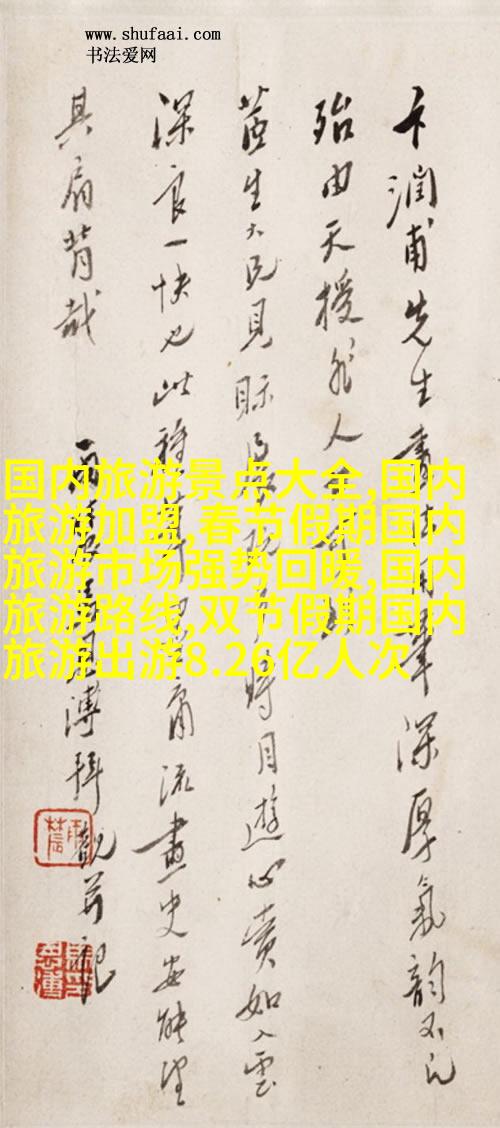 www.shufaai.com
书法爱网
国内旅游景点大全,国内
旅游加盟,春节假期国内
旅游市场强势回暖,国内
旅游路线,双节假期国内
旅游出游8.26亿人次
卞潤甫先生用筆深厚氣韻不凡
殆由天授非人
生大兄見际時目遊心賞如入雲
深良一快也此庸流畫史安能望
其肩背哉
拜觀并記